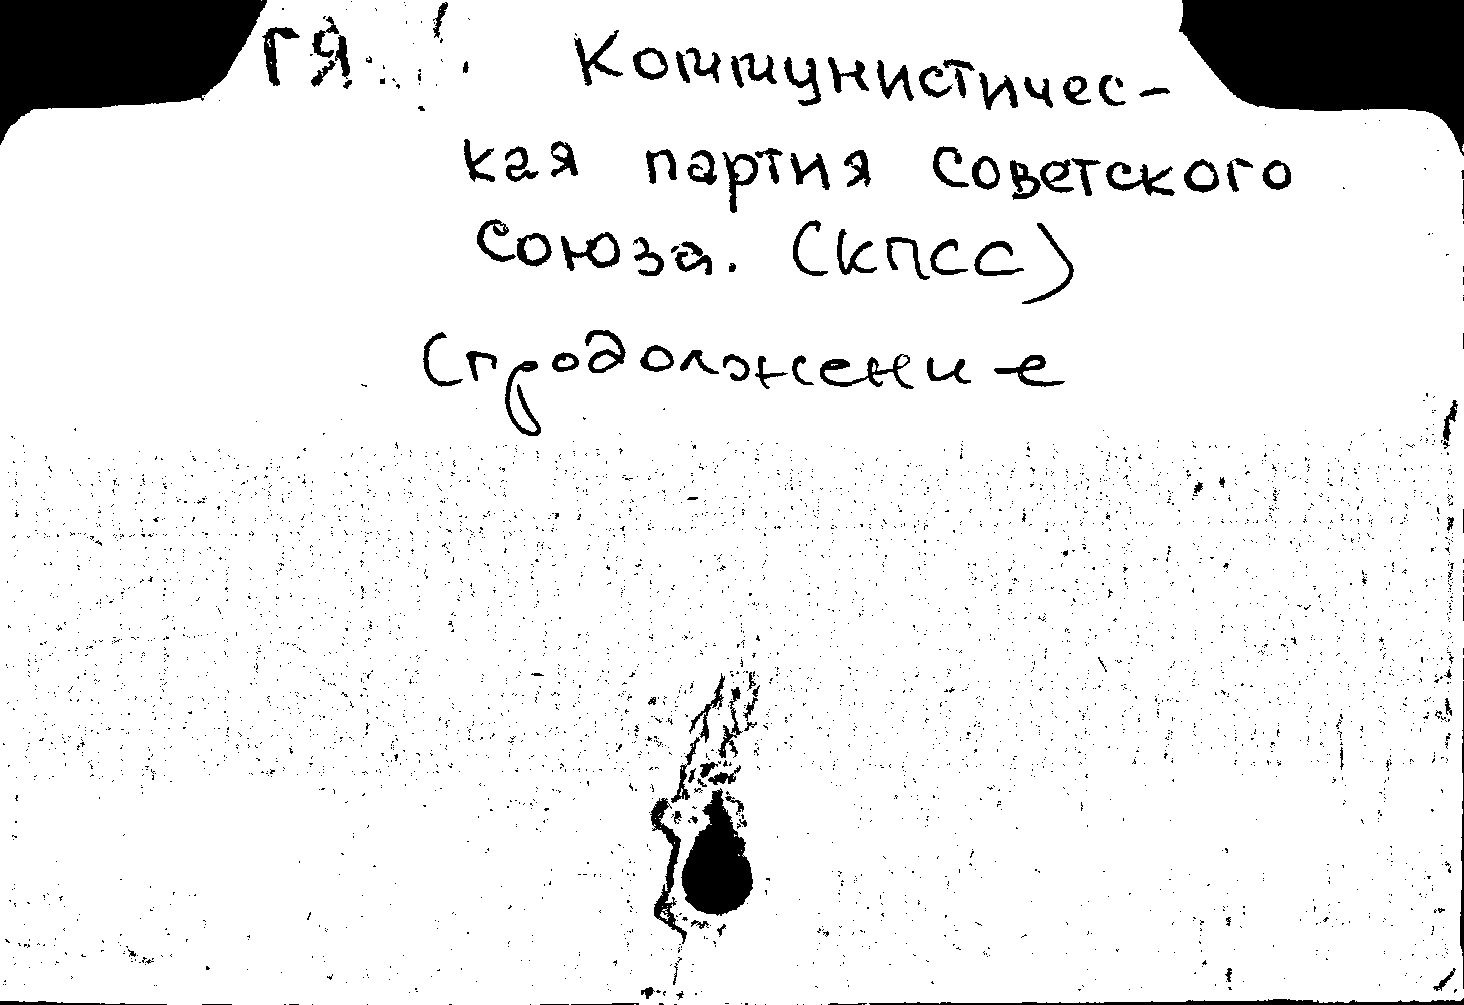 ГЯ. Коммунистичес-
кая партия Советского
Союза. (КПСС)
(продолжение